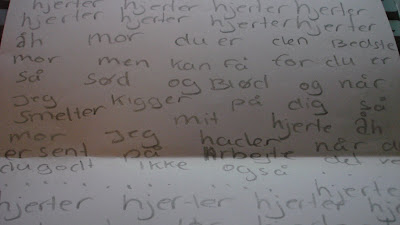 hjerter hjerter hjerter hjerter
hjerter hjerter hjerter hjerter
åh mor du er den Bedste
mor men kan få for du er
så sød og Blød og når
jeg kigger på dig så
smelter mit hjerte åh
mor jeg hader når d
er sent på Arbejde
du godt ikke også det ve
hjerter
hjerter hjer-ler hjerter hjerter